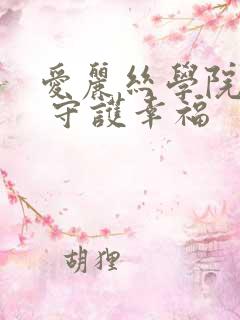 愛麗絲學院
守護幸福
胡狸